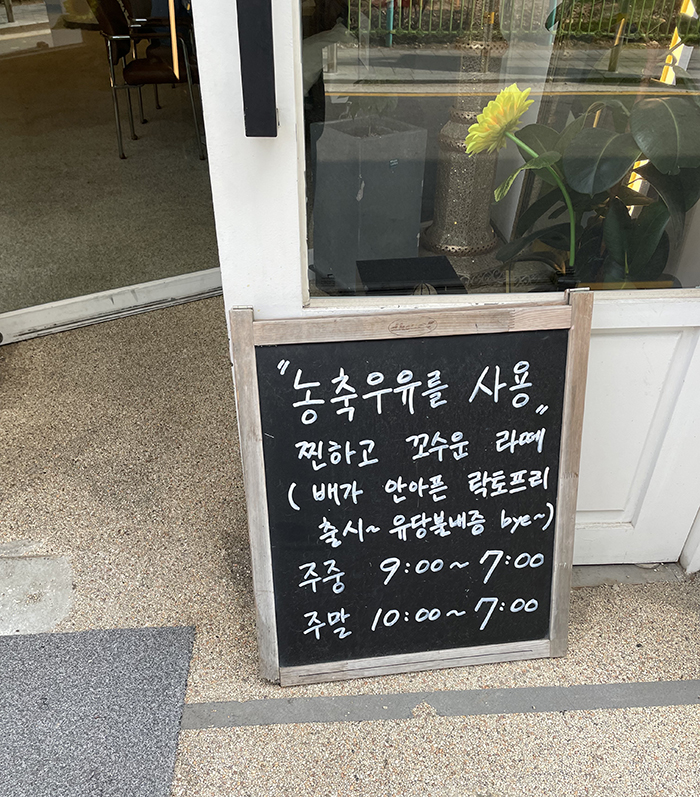 "농축우유를 사용"
찐하고 꼬수운 라떼
( 배가 안아픈 락토프리
출시~ 유당불내증 bye~)
주중 9:00~ 7:00
주말 10:00~ 7:00